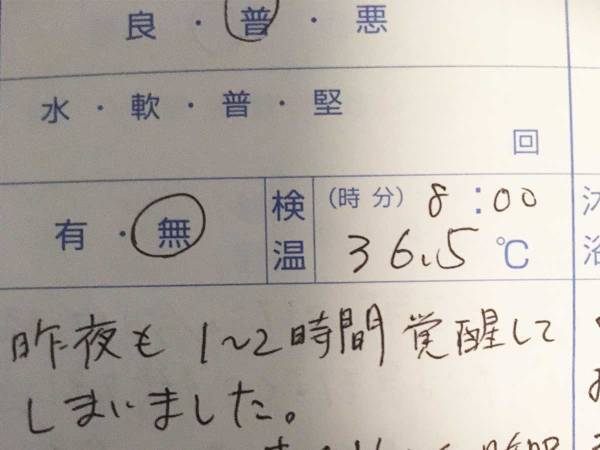 良・普・悪
水・軟・普・堅
回
有・無
検温
(時分) 8:00
36.5℃
昨夜も1~2時間覚醒して
しまいました。